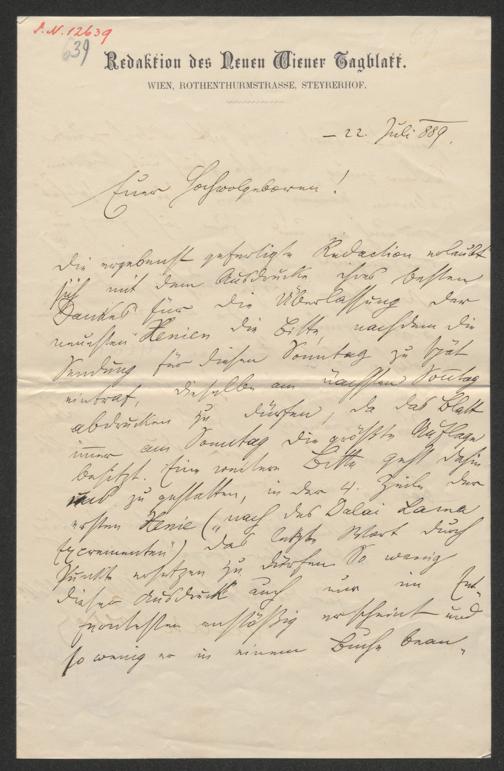 I. N. 12639
639
Redaktion des Neuen Wiener Tagblatt.
WIEN, ROTHENTHURMSTRASSE, STEYRERHOF.
– 22. Juli 889.
Euer Hochwolgeboren!
Die ergebenst gefertigte Redaction erlaubt
sich mit dem Ausdrucke ihres besten
Dankes für die Überlassung der
neuesten Xenien die Bitte, nachdem die
Sendung für diesen Sonntag zu spät
eintraf, dieselbe am nächsten Sonntag
abdrucken zu dürfen, da das Blatt
immer am Sonntag die größte Auflage
besitzt. Eine weitere Bitte geht dahin
uns zu gestatten, in der 4. Zeile der
ersten Xenie („nach des Dalai Lama
Excrementen“) das letzte Wort durch
Punkte ersetzen zu dürfen. So wenig
dieser Ausdruck auch nur im Ent-
ferntesten anstößig erscheint und
so wenig er in einem Buche bean-